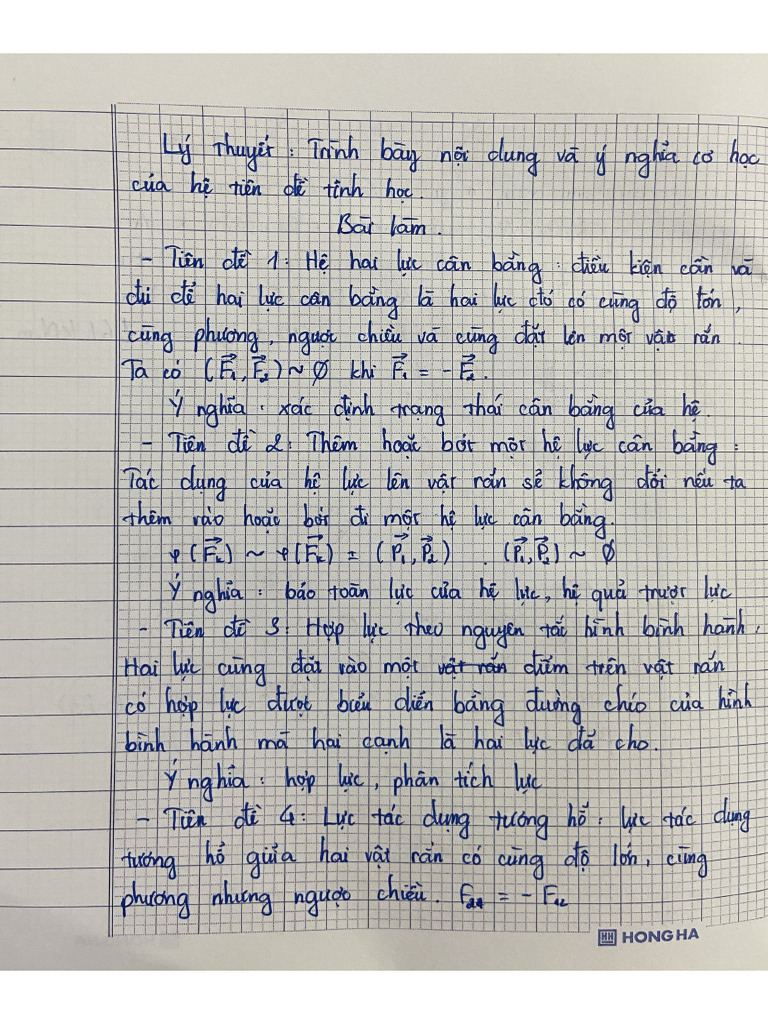 Lý thuyết: Trình bày nội dung và ý nghĩa cơ học
của hệ tiên đề tĩnh học.
Bài làm.
- Tiên đề 1: Hệ hai lực cân bằng: điều kiện cần và
đủ để hai lực cân bằng là hai lực đó có cùng độ lớn,
cùng phương, ngược chiều và cùng đặt lên một vật rắn.
Ta có (F⃗₁, F⃗₂) ~ ∅ khi F⃗₁ = - F⃗₂.
Ý nghĩa: xác định trạng thái cân bằng của hệ.
- Tiên đề 2: Thêm hoặc bớt một hệ lực cân bằng:
Tác dụng của hệ lực lên vật rắn sẽ không đổi nếu ta
thêm vào hoặc bớt đi một hệ lực cân bằng.
φ(F⃗ₖ) ~ φ(F⃗ₖ) ± (P⃗₁, P⃗₂). (P⃗₁, P⃗₂) ~ ∅
Ý nghĩa: bảo toàn lực của hệ lực, hệ quả trượt lực
- Tiên đề 3: Hợp lực theo nguyên tắc hình bình hành.
Hai lực cùng đặt vào một vật rắn điểm trên vật rắn
có hợp lực được biểu diễn bằng đường chéo của hình
bình hành mà hai cạnh là hai lực đã cho.
Ý nghĩa: hợp lực, phân tích lực
- Tiên đề 4: Lực tác dụng tương hỗ: lực tác dụng
tương hỗ giữa hai vật rắn có cùng độ lớn, cùng
phương nhưng ngược chiều. F₂₁ = - F₁₂
HH HONG HA